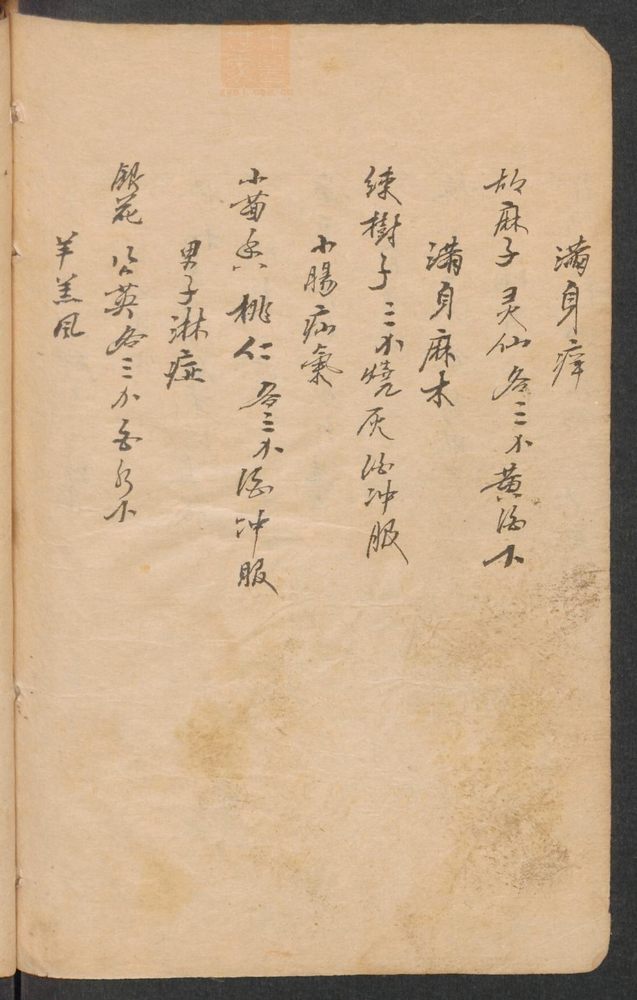 满身痒
胡麻子 灵仙各三个黄酒下
满身麻木
练樹子三个燒灰酒冲服
小腸疝氣
小茴香 桃仁 各三个酒冲服
男子淋症
銀花 公英各三个 白水下
羊羔风